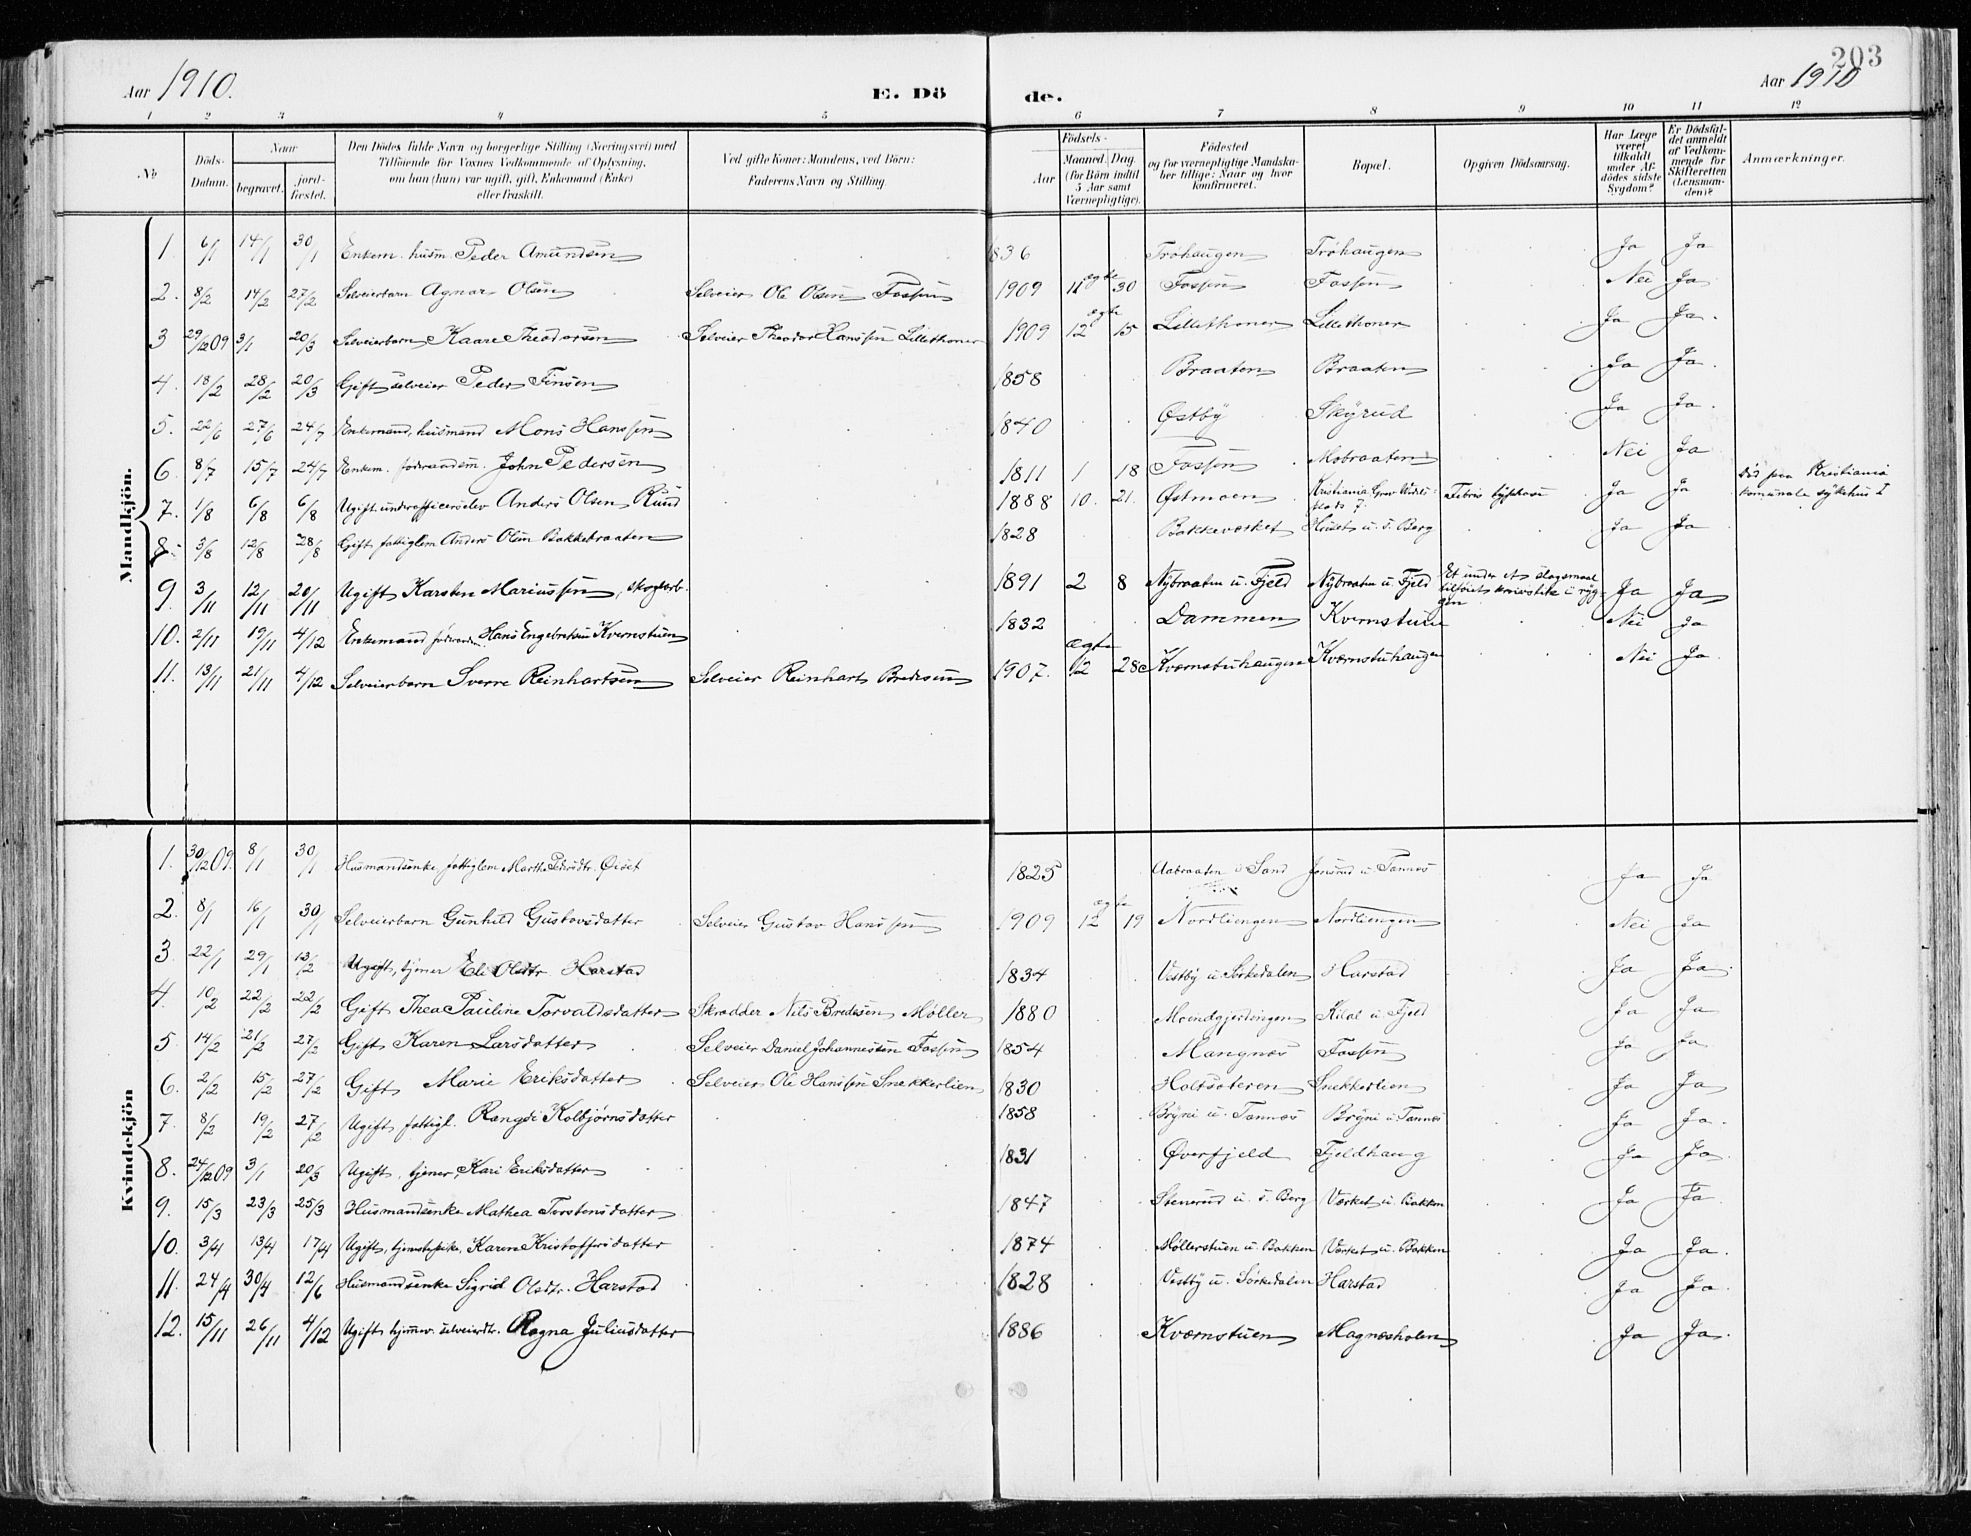 203
Aar 1910. E. Dö de. Aar 1910
1 2 3 4 5 6 7 8 9 10 11 12
No
Döds-Datum.
Naar
begravet.
jord-fæstet.
Den Dödes fulde Navn og borgerlige Stilling (Næringsvei) med
Tilföiende for Voxnes Vedkommende af Oplysning,
om han (hun) var ugift, gift, Enkemand (Enke)
eller fraskilt.
Ved gifte Koner: Mandens, ved Börn:
Faderens Navn og Stilling.
Födsels-
Aar
Maaned. Dag.
(for Börn indtil
5 Aar samt
Værnepligtige).
Födested
og for værnepligtige Mandska-
ber tillige: Naar og hvor
konfirmeret.
Bopæl.
Opgiven Dödsaarsag.
Har Læge
været
tilkaldt
under Af-
dödes sidste
Sygdom?
Er Dödsfal-
det anmeldt
af Vedkom-
mende for
Skifteretten
(Lensman-
den)?
Anmærkninger.
Mandkjön.
1 6/1 14/1 30/1 Enkem. husm. Peder Amundsen 1836 Trøhaugen Trøhaugen Ja Ja
2. 8/2 14/2 27/2 Selveierbarn Agnar Olsen Selveier Ole Olsen Fossen 1909 11 ægte 30 Fossen Fossen Nei Ja
3 29/12 09 3/1 20/3 Selveierbarn Kaare Theodorsen Selveier Theodor Hanssen Lillethoner 1909 12 ægte 15 Lillethoner Lillethoner Ja Ja.
4. 18/2 28/2 20/3 Gift selveier Peder Finsen 1858 Braaten Braaten Ja Ja.
5. 22/6 27/6 24/7 Enkemand, husmand Mons Hanssen 1840 Østby Skyrud Ja Ja.
6 8/7 15/7 24/7 Enkem. forraadsm. John Pedersen 1811 1 18 Fossen Mobraaten Nei Ja
7. 1/8 6/8 6/8 Ugift underofficerselev Anders Olsen Rund 1888 10. 21. Østmoen Kristiania Grev Wedels plads 7. Febris typhosa Ja Ja Død paa Kristiania komunale sykehus I
8. 3/8 12/8 28/8 Gift fattiglem Anders Olsen Bakkebraaten 1828 Bakkeværket Huset u. S. Berg Ja Ja
9. 3/11 12/11 20/11 Ugift Karsten Mariussen, skogarb. 1891 2 8 Nybraaten u. Fjeld Nybraaten u. Fjeld Et under et slagsmaal tilføiet knivstik i ryggen Ja Ja
10. 2/11 19/11 4/12 Enkemand Hans Engebretsen Kvernstuen 1832 Dammen Kvernstuen Nei Ja
11. 13/11 21/11 4/12 Selveierbarn Sverre Reinhartsen Selveier Reinhart Bredesen 1907. ægte 12 28 Kværnstuhaugen Kværnstuhaugen Nei Ja
Kvindekjön
1. 30/12 09. 8/1 30/1 Husmandsenke, fattiglem Marthe Pedersdtr. Øiset 1825 Aabraaten i Sand Jonsrud u. Tannes Ja Ja
2. 8/1 16/1 30/1 Selveierbarn Gunhild Gustavsdatter Selveier Gustav Hanssen 1909 ægte 12 19 Nordliengen Nordliengen Nei Ja
3. 22/1 29/1 13/2 Ugift, tjener Eli Olsdtr Harstad 1834 Vestby u. Sørkedalen Harstad Ja Ja.
4. 10/2 22/2 22/2 Gift Thea Pauline Torvaldsdatter Skrædder Nils Bredesen Møller 1880 Moendgjerdingen Kilal u. Fjeld Ja Ja.
5. 14/2 21/2 27/2 Gift Karen Larsdatter Selveier Daniel Johannessen Fossen 1854 Mangnæs Fossen Ja Ja.
6. 2/2 15/2 27/2 Gift Marie Eriksdatter Selveier Ole Hanssen Snekkerlien 1830 Holtsæteren Snekkerlien Ja Ja
7. 8/2 19/2 27/2 Ugift fattigl. Rangdi Kolbjørnsdatter 1858 Bryni u. Tannæs Bryni u. Tannæs Ja Ja.
8. 24/12 09 3/1 20/3 Ugift, tjener Kari Eriksdatter 1831 Øverfjeld Fjeldhaug Ja Ja.
9. 15/3 23/3 25/3 Husmandsenke Mathea Torstensdatter 1847 Stenerud u. S. Berg Værket u. Bakken Ja Ja.
10. 3/4 13/4 17/4 Ugift, tjenestepike, Karen Kristoffersdatter 1874 Møllerstuen u. Bakken Værket u. Bakken Ja Ja.
11. 24/4 30/4 12/6 Husmandsenke Sigrid Olsdtr. Harstad 1828 Vestby u. Sørkedalen Harstad Ja Ja.
12. 15/11 26/11 4/12 Ugift hjemmev. selveierdtr. Ragna Juliusdatter 1886 Kværnstuen Magnæsholen Ja Ja.